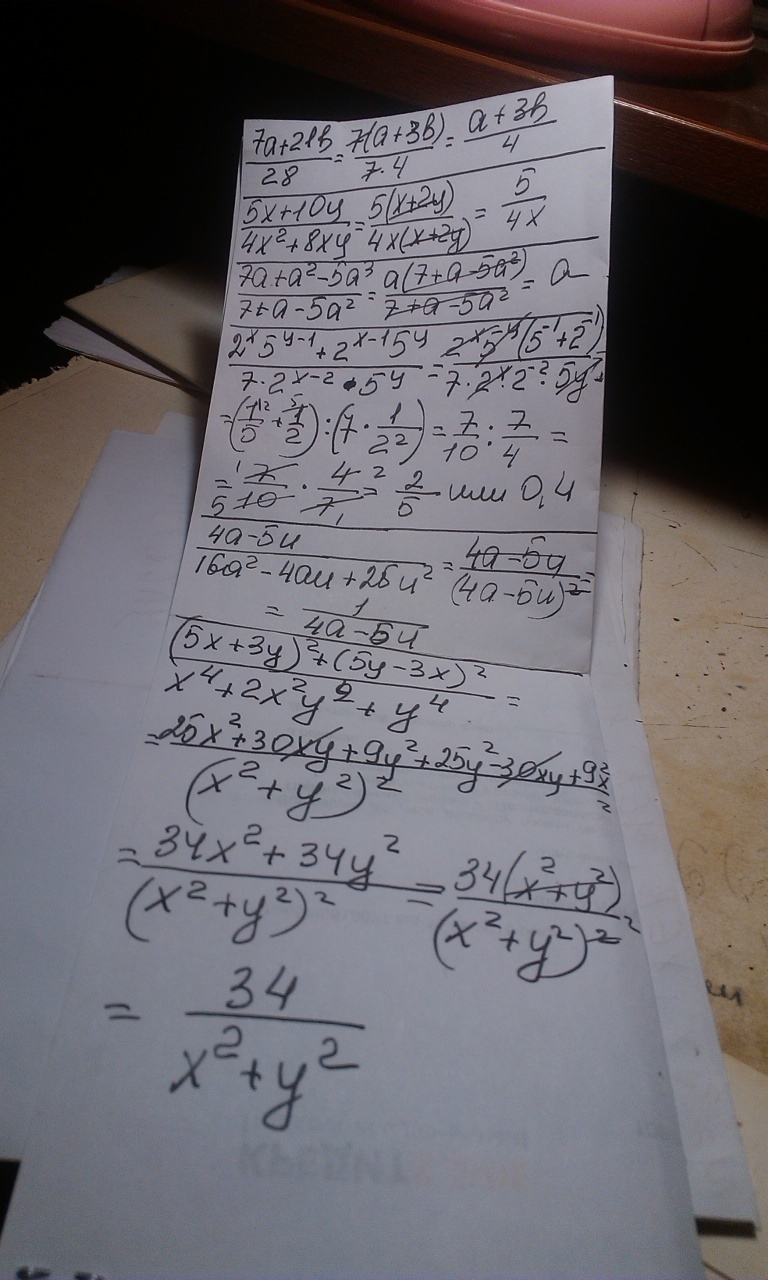 (7a+21b)/28 = 7(a+3b)/(7·4) = (a+3b)/4
(5x+10y)/(4x²+8xy) = 5(x+2y)/(4x(x+2y)) = 5/(4x)
(7a+a²-5a³)/(7+a-5a²) = a(7+a-5a²)/(7+a-5a²) = a
(2ˣ5ʸ⁻¹+2ˣ⁻¹5ʸ)/(7·2ˣ⁻²·5ʸ) = 2ˣ5ʸ(5⁻¹+2⁻¹)/(7·2ˣ·2⁻²·5ʸ) =
=(1/5+1/2):(7·1/2²)=7/10:7/4=
=7/10·4/7=2/5 или 0,4
(4a-5u)/(16a²-4au+25u²) = (4a-5u)/(4a-5u)² =
= 1/(4a-5u)
((5x+3y)²+(5y-3x)²)/(x⁴+2x²y²+y⁴) =
=(25x²+30xy+9y²+25y²-30xy+9x²)/(x²+y²)²
=(34x²+34y²)/(x²+y²)² = 34(x²+y²)/(x²+y²)²
= 34/(x²+y²)